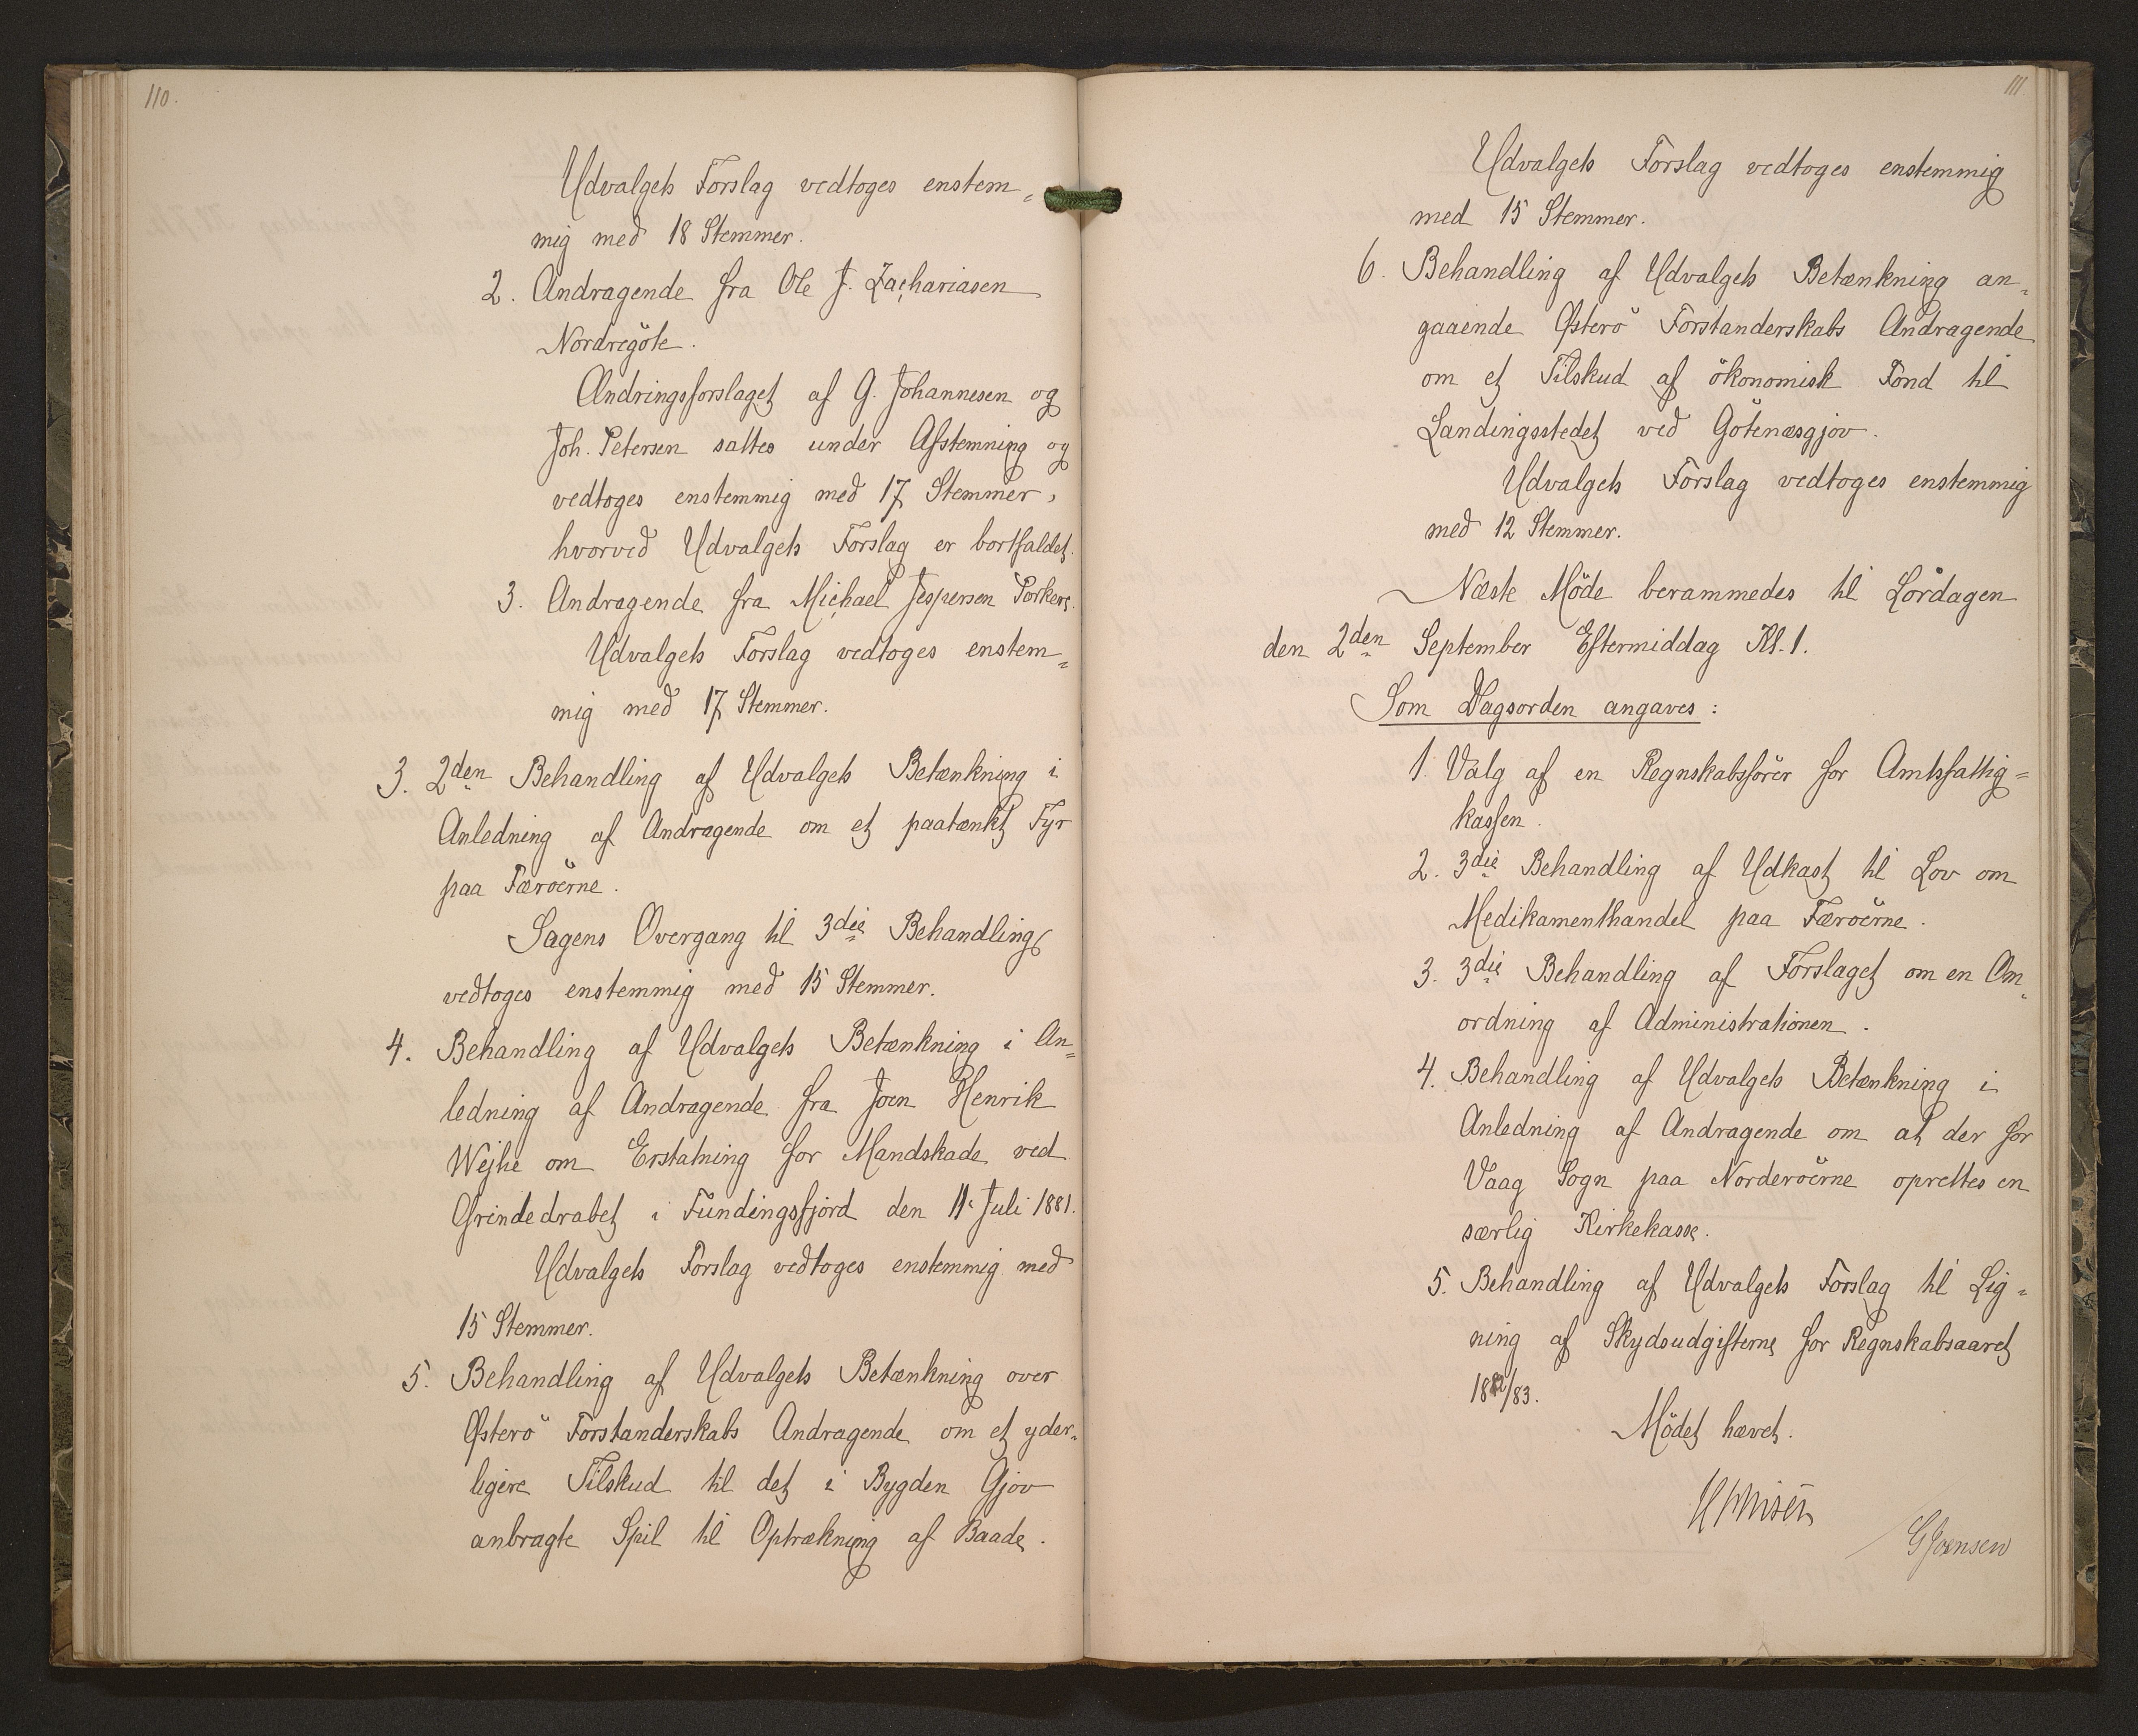 110.
Udvalgets Forslag vedtoges enstem-
mig med 18 Stemmer.
2. Andragende fra Ole J. Zachariasen
Nordregöte.
Ændringsforslaget af G. Johannesen og
Joh. Petersen sattes under Afstemning og
vedtoges enstemmig med 17 Stemmer,
hvorved Udvalgets Forslag er bortfaldet.
3. Andragende fra Michael Jespersen Porkere.
Udvalgets Forslag vedtoges enstem-
mig med 17 Stemmer.
3. 2den Behandling af Udvalgets Betænkning i
Anledning af Andragende om et paatænkt Fyr
paa Færöerne.
Sagens Overgang til 3die Behandling
vedtoges enstemmig med 15 Stemmer.
4. Behandling af Udvalgets Betænkning i An-
ledning af Andragende fra Joen Henrik
Wejhe om Erstatning for Mandskade ved
Grindedrabet i Fundingsfjord den 11. Juli 1881.
Udvalgets Forslag vedtoges enstemmig med
15 Stemmer.
5. Behandling af Udvalgets Betænkning over
Österö Forstanderskabs Andragende om et yder-
ligere Tilskud til det i Bygden Gjov
anbragte Spil til Optrækning af Baade.
111
Udvalgets Forslag vedtoges enstemmig
med 15 Stemmer.
6. Behandling af Udvalgets Betænkning an-
gaaende Österö Forstanderskabs Andragende
om et Tilskud af ökonomisk Fond til
Landingsstedet ved Götenæsgjov.
Udvalgets Forslag vedtoges enstemmig
med 12 Stemmer.
Næste Möde berammedes til Lördagen
den 2den September Eftermiddag Kl. 1.
Som Dagsorden angaves:
1. Valg af en Regnskabsförer for Amtsfattig-
kassen.
2. 3die Behandling af Udkast til Lov om
Medikamenthandel paa Færöerne.
3. 3die Behandling af Forslaget om en Om-
ordning af Administrationen.
4. Behandling af Udvalgets Betænkning i
Anledning af Andragende om at der for
Vaag Sogn paa Norderöerne oprettes en
særlig Kirkekasse.
5. Behandling af Udvalgets Forslag til Lig-
ning af Skydsudgifterne for Regnskabsaaret
1882/83.
Mödet hævet.
GJoensen